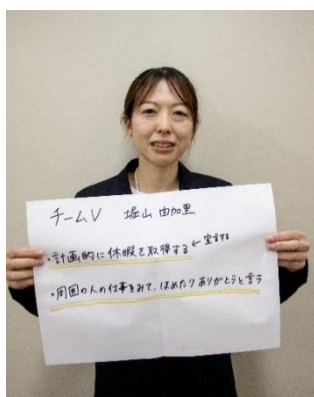 チームV 堀山 由加里
・計画的に休暇を取得する ← 宣言する
・周囲の人の仕事をみて、ほめたりありがとうと言う